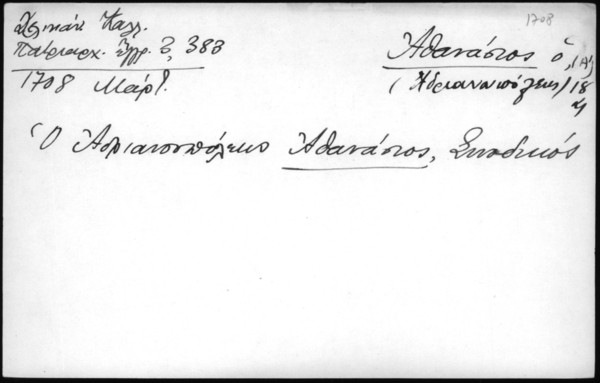 1708
Δελικάν Καλλ.
Πατριαρχ. Ἔγγρ. 3, 383
1708 Μάρτ.
Ἀθανάσιος ὁ, (Α)
(Ἀδριανουπόλεως) 18
Ὁ Ἀδριανουπόλεως Ἀθανάσιος, Συνοδικός